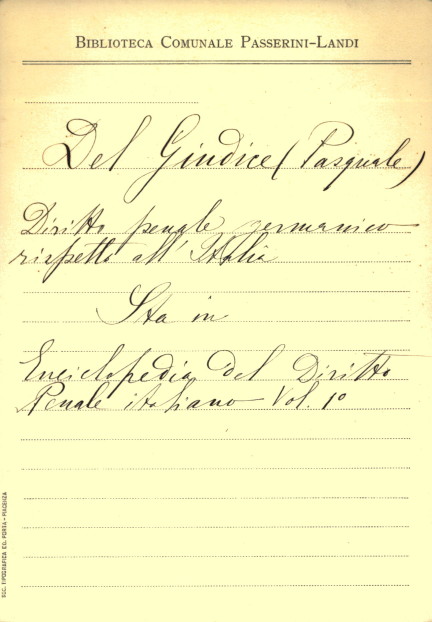 BIBLIOTECA COMUNALE PASSERINI-LANDI
Del Giudice (Pasquale)
Diritto penale germanico
rispetto all'Italia
Sta in
Enciclopedia del Diritto
Penale italiano Vol. 1º
SOC. TIPOGRAFICA ED. PORTA - PIACENZA